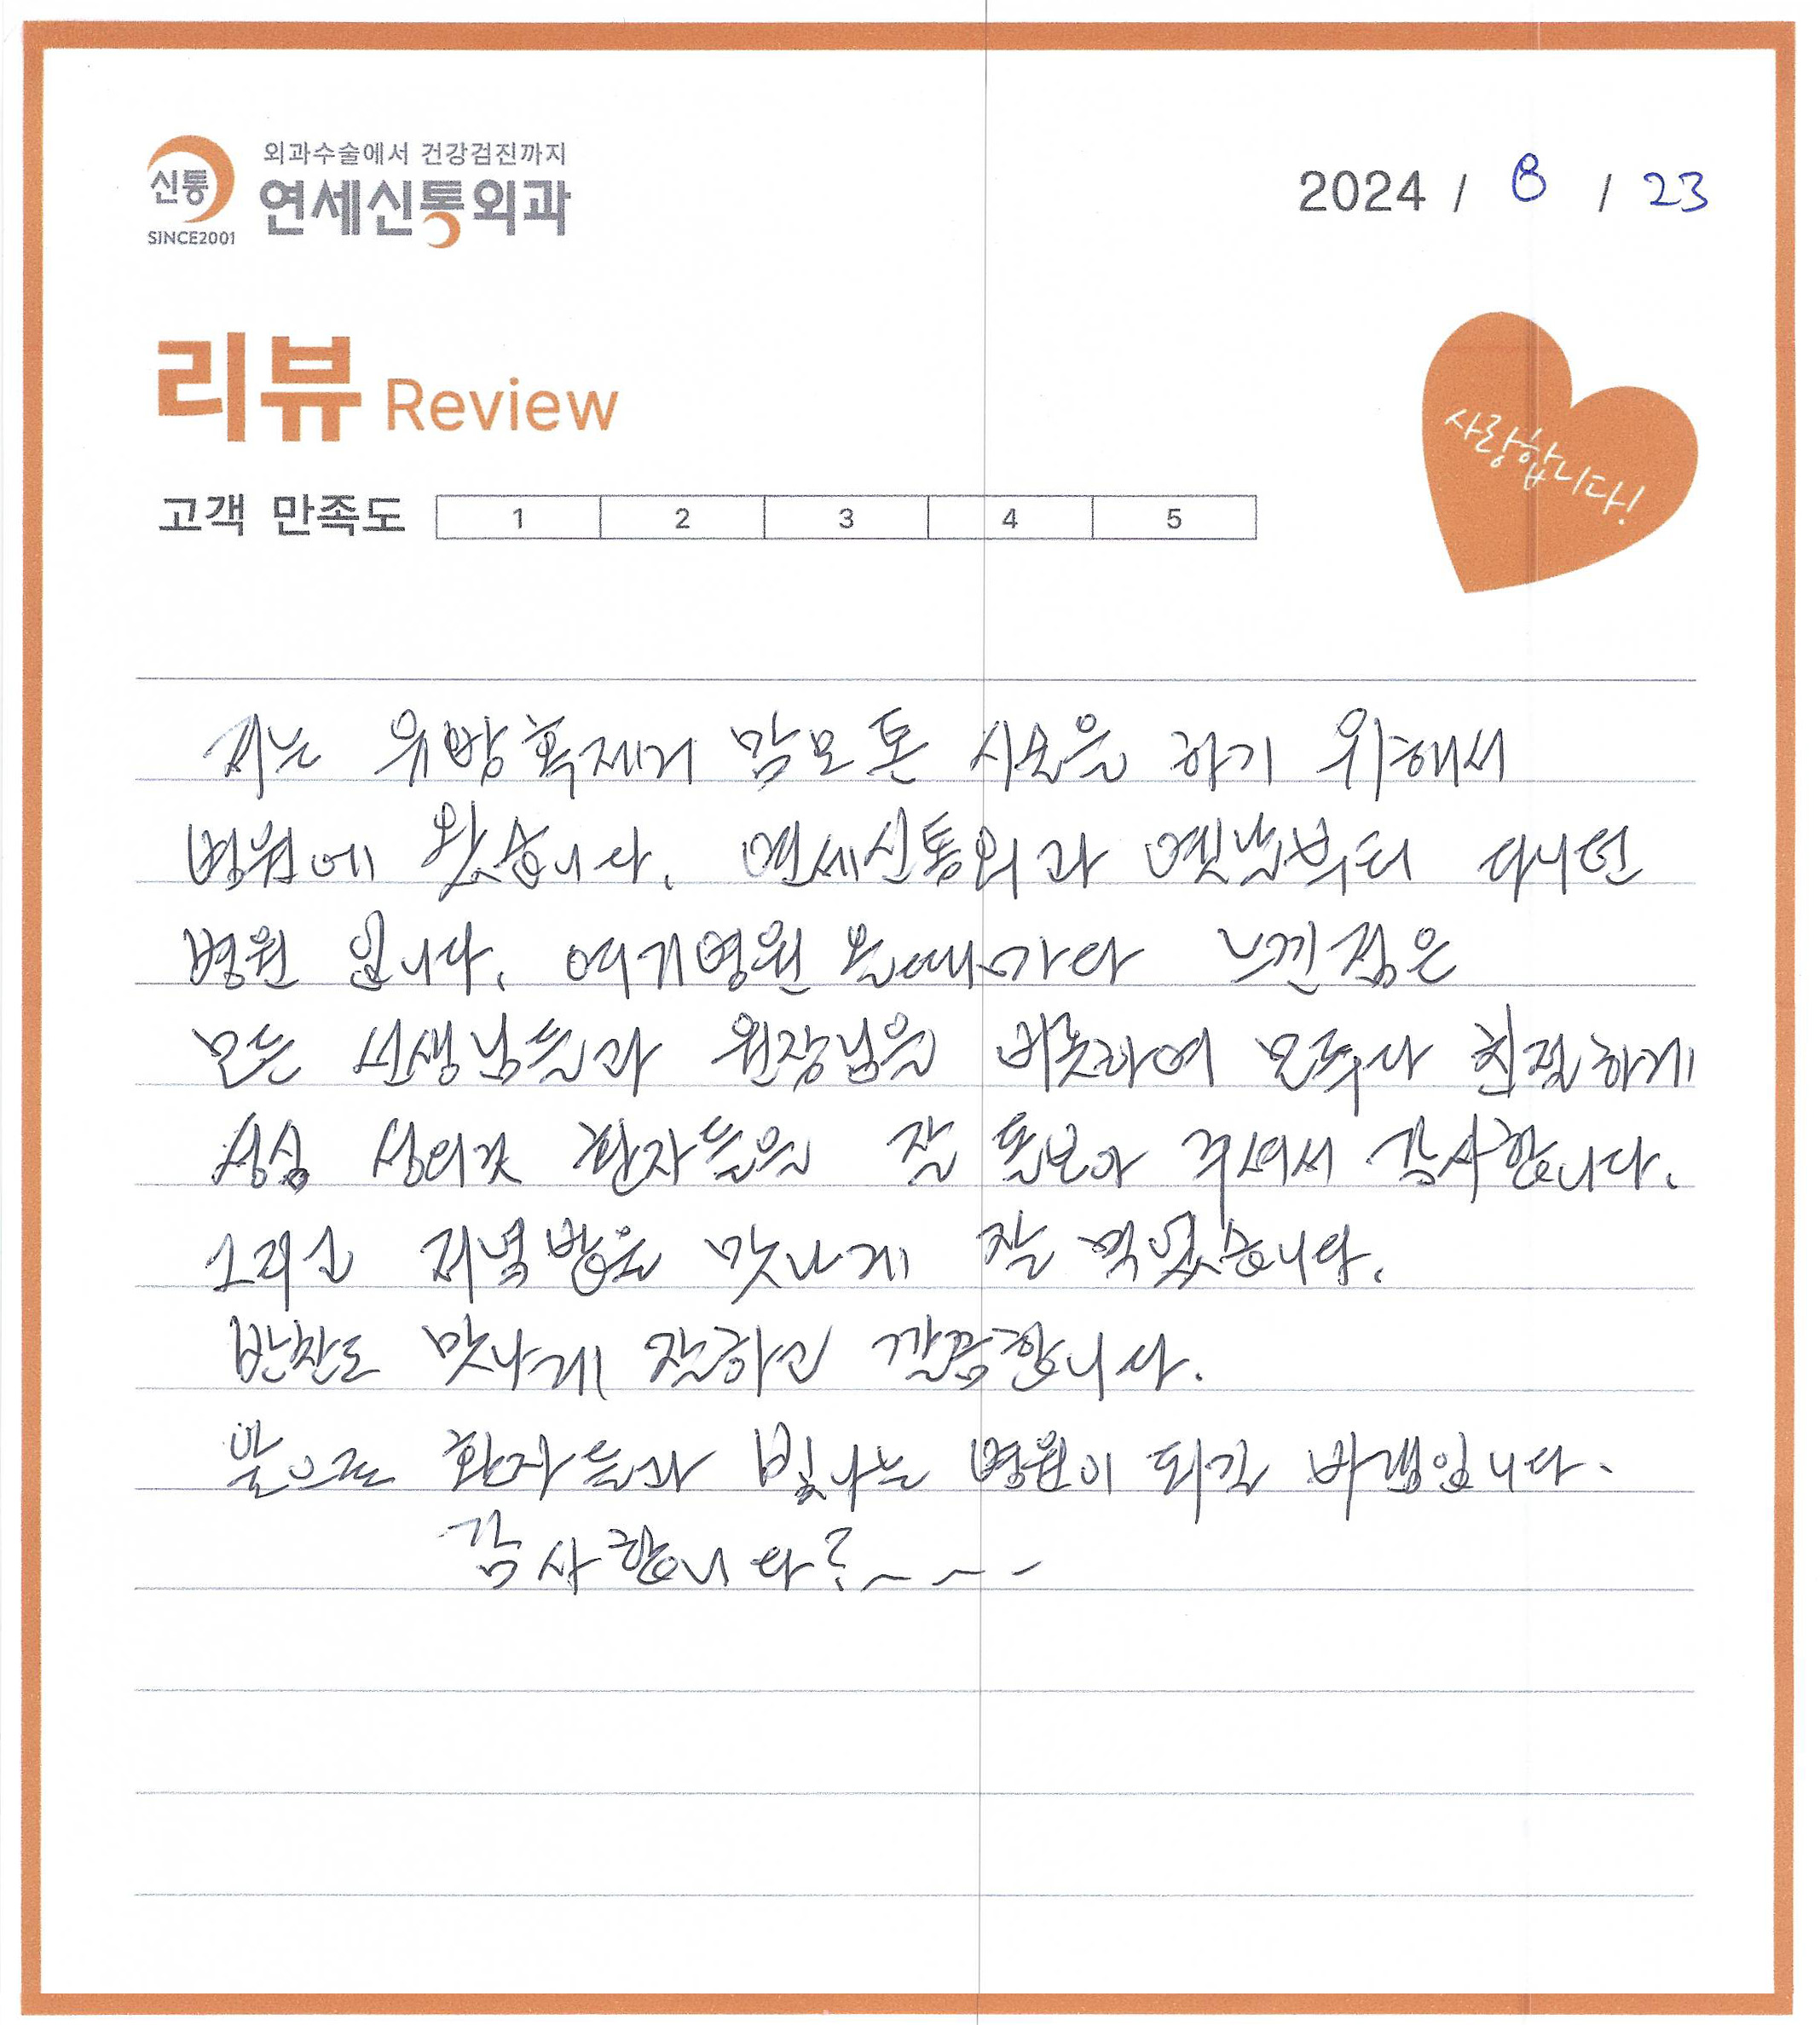 외과수술에서 건강검진까지
신통 연세신통외과
SINCE2001
2024 / 8 / 23
리뷰 Review
사랑합니다!
고객 만족도 1 2 3 4 5
저는 유방혹제거 맘모톤 시술을 하기 위해서
병원에 왔습니다. 연세신통외과 옛날부터 다니던
병원 입니다. 여기병원 올때마다 느낀점은
모든 선생님들과 원장님을 비롯하여 모두다 친절하게
성심 성의것 환자들을 잘 돌보아 주셔서 감사합니다.
그리고 저녁밥을 맛나게 잘 먹었습니다.
반찬도 맛나게 잘하고 깔끔합니다.
앞으로 환자들과 빛나는 병원이 되길 바램입니다.
감사합니다~~~